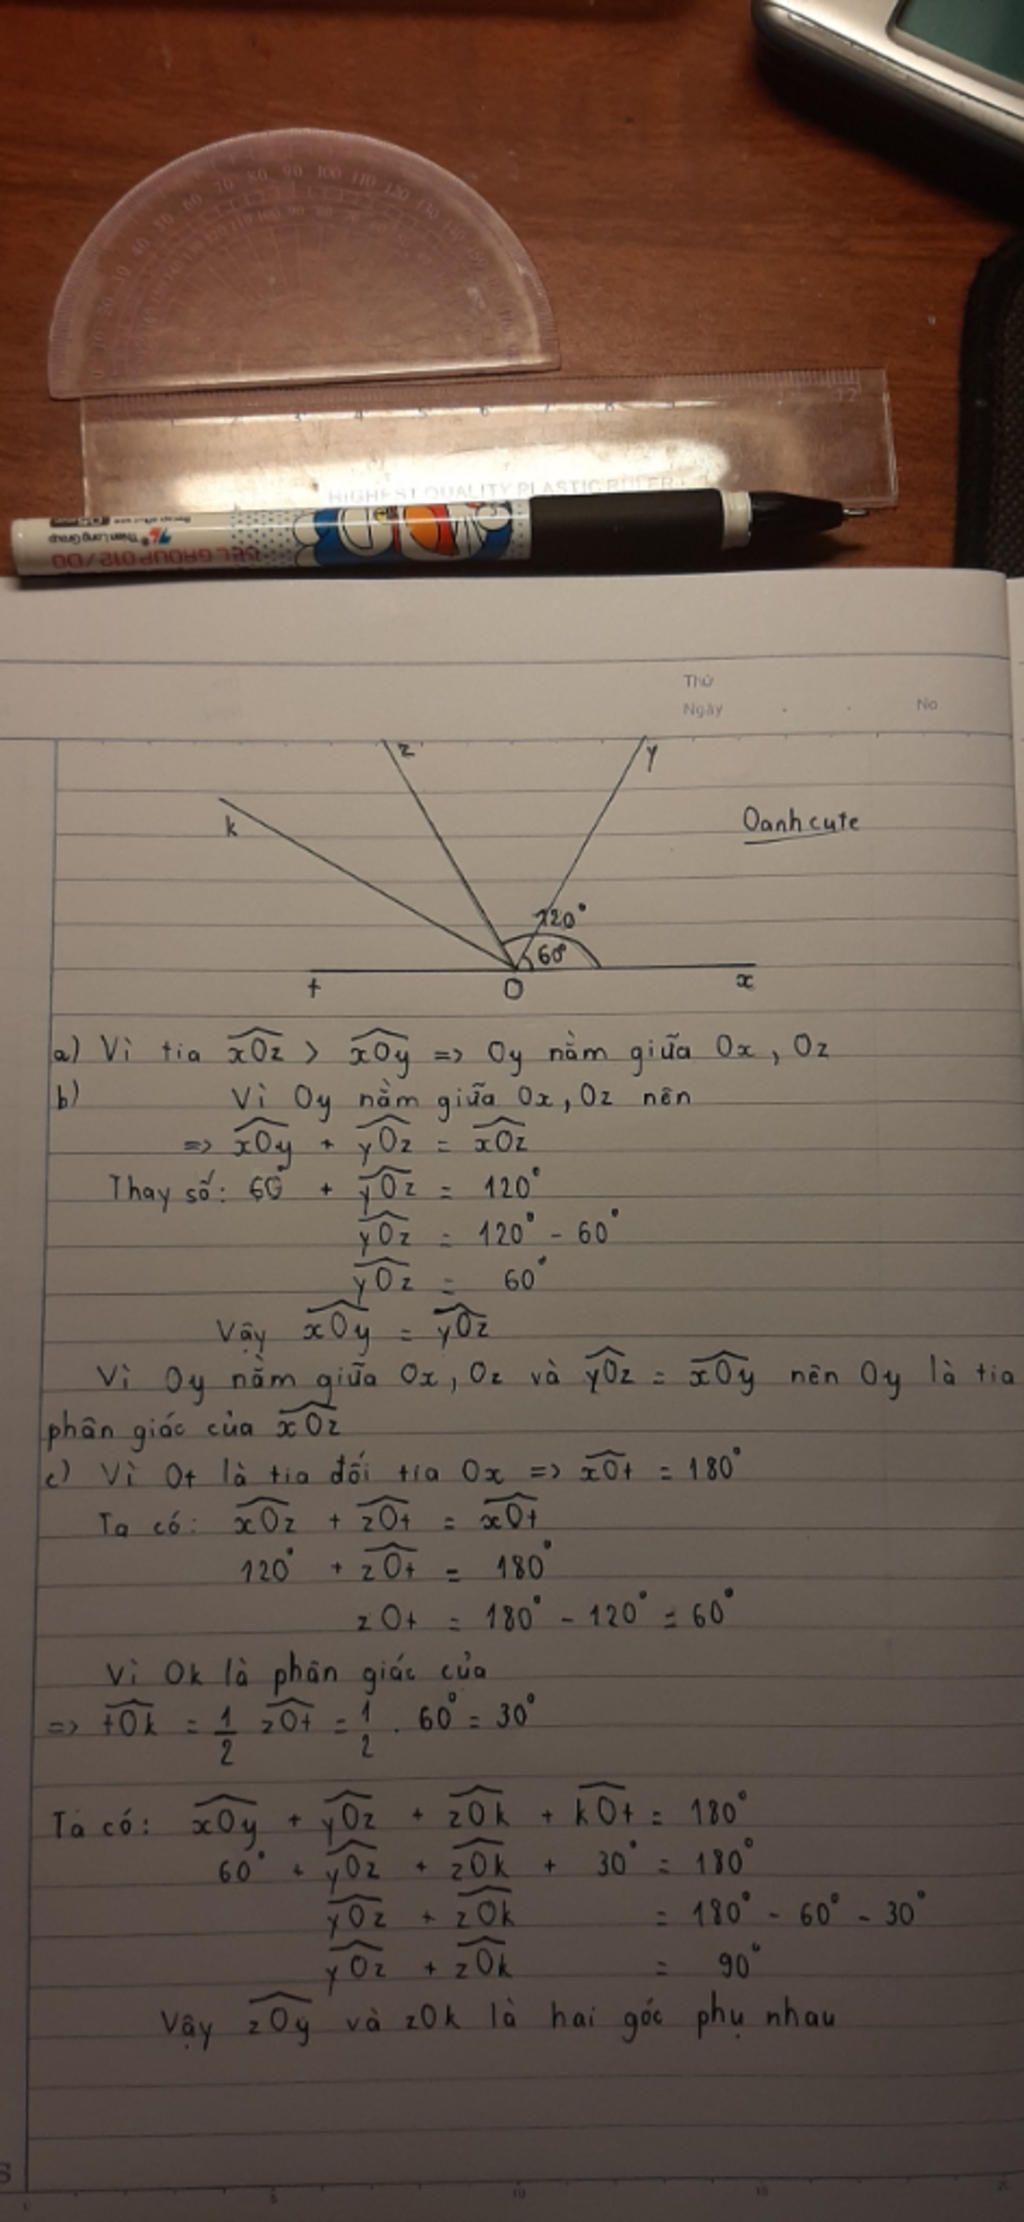 HIGHEST QUALITY PLASTIC RULER
Thien Long Group
GEL GROUP 012/DO
Thứ
Ngày . . No
z
y
k
Oanh cute
120°
60°
t O x
a) Vì tia xOz > xOy => Oy nằm giữa Ox, Oz
b) Vì Oy nằm giữa Ox, Oz nên
=> xOy + yOz = xOz
Thay số: 60° + yOz = 120°
yOz = 120° - 60°
yOz = 60°
Vậy xOy = yOz
Vì Oy nằm giữa Ox, Oz và yOz = xOy nên Oy là tia
phân giác của xOz
c) Vì Ot là tia đối tia Ox => xOt = 180°
Ta có: xOz + zOt = xOt
120° + zOt = 180°
zOt = 180° - 120° = 60°
Vì Ok là phân giác của
=> tOk = 1/2 zOt = 1/2 . 60° = 30°
Ta có: xOy + yOz + zOk + kOt = 180°
60° + yOz + zOk + 30° = 180°
yOz + zOk = 180° - 60° - 30°
yOz + zOk = 90°
Vậy zOy và zOk là hai góc phụ nhau